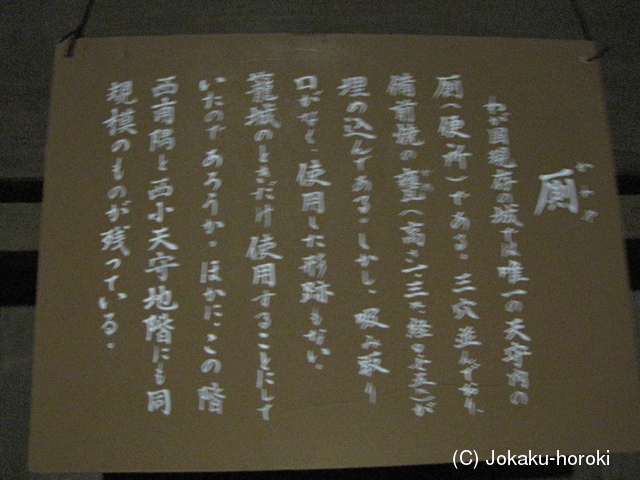 厠
かわや
わが国現存の城では唯一の天守内の
厠（便所）である。三穴並んでおり、
備前焼の甕（高さ一三
が
埋め込んである。しかし、吸み取り
口がなく、使用した形跡もない。
籠城のときだけ使用することにして
いたのであろうか。ほかに、この階
西南隅と西小天守地階にも同
規模のものが残っている。
(C) Jokaku-horoki